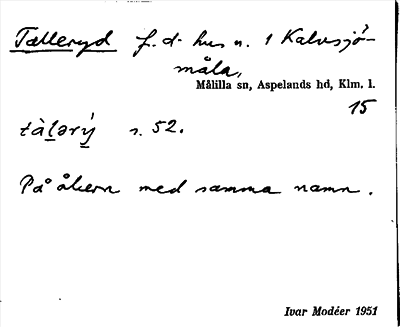 Tælleryd f.d. hus u. 1 Kalvsjö-
måla,
Målilla sn, Aspelands hd, Klm. l.
15
tàlәrý s. 52.
På åkern med samma namn.
Ivar Modéer 1951